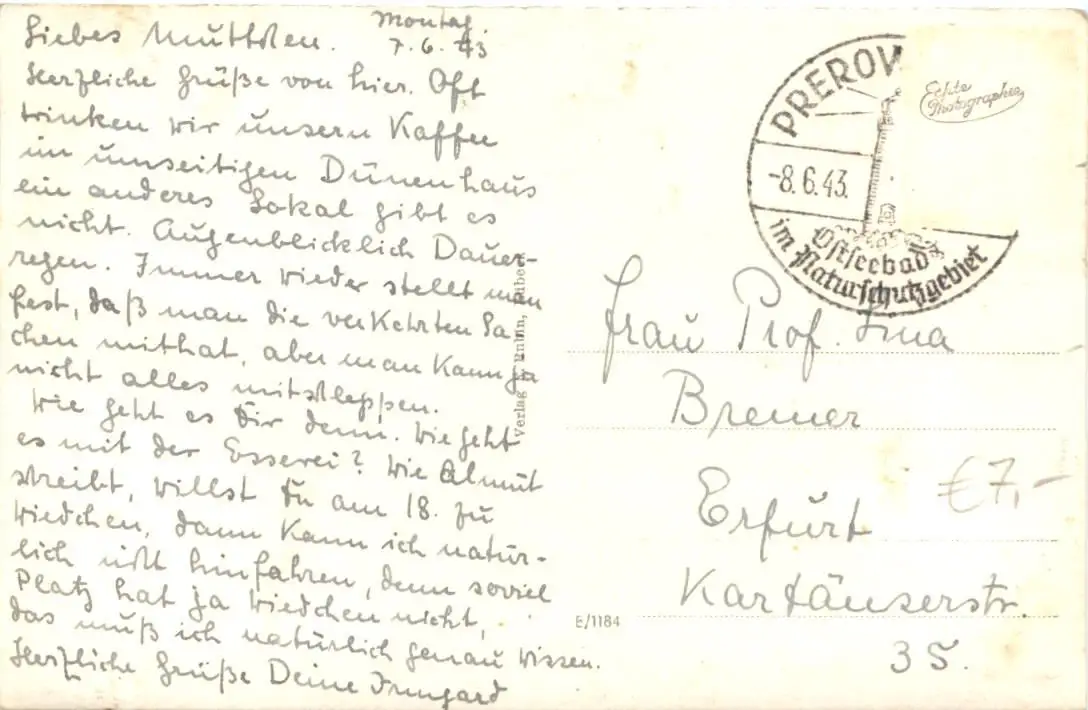 Montag
7.6.43
Liebes Muttchen.
Herzliche Grüße von hier. Oft
trinken wir unsern Kaffee
im umseitigen Dünenhaus
ein anderes Lokal gibt es
nicht. Augenblicklich Dauer-
regen. Immer wieder stellt man
fest, daß man die verkehrten Sa-
chen mithat, aber man kann ja
nicht alles mitschleppen.
Wie geht es Dir denn. Wie geht
es mit der Esserei? Wie Almut
schreibt, willst Du am 18. zu
Wiedchen, dann kann ich natür-
lich nicht hinfahren, denn soviel
Platz hat ja Wiedchen nicht,
das muß ich natürlich genau wissen.
Herzliche Grüße Deine Irmgard
Verlag
E/1184
PREROW
-8.6.43.
Ostseebad
im Naturschutzgebiet
Echte
Photographie
Frau Prof. Lina
Bremer
Erfurt
€7,-
Kartäuserstr.
35.